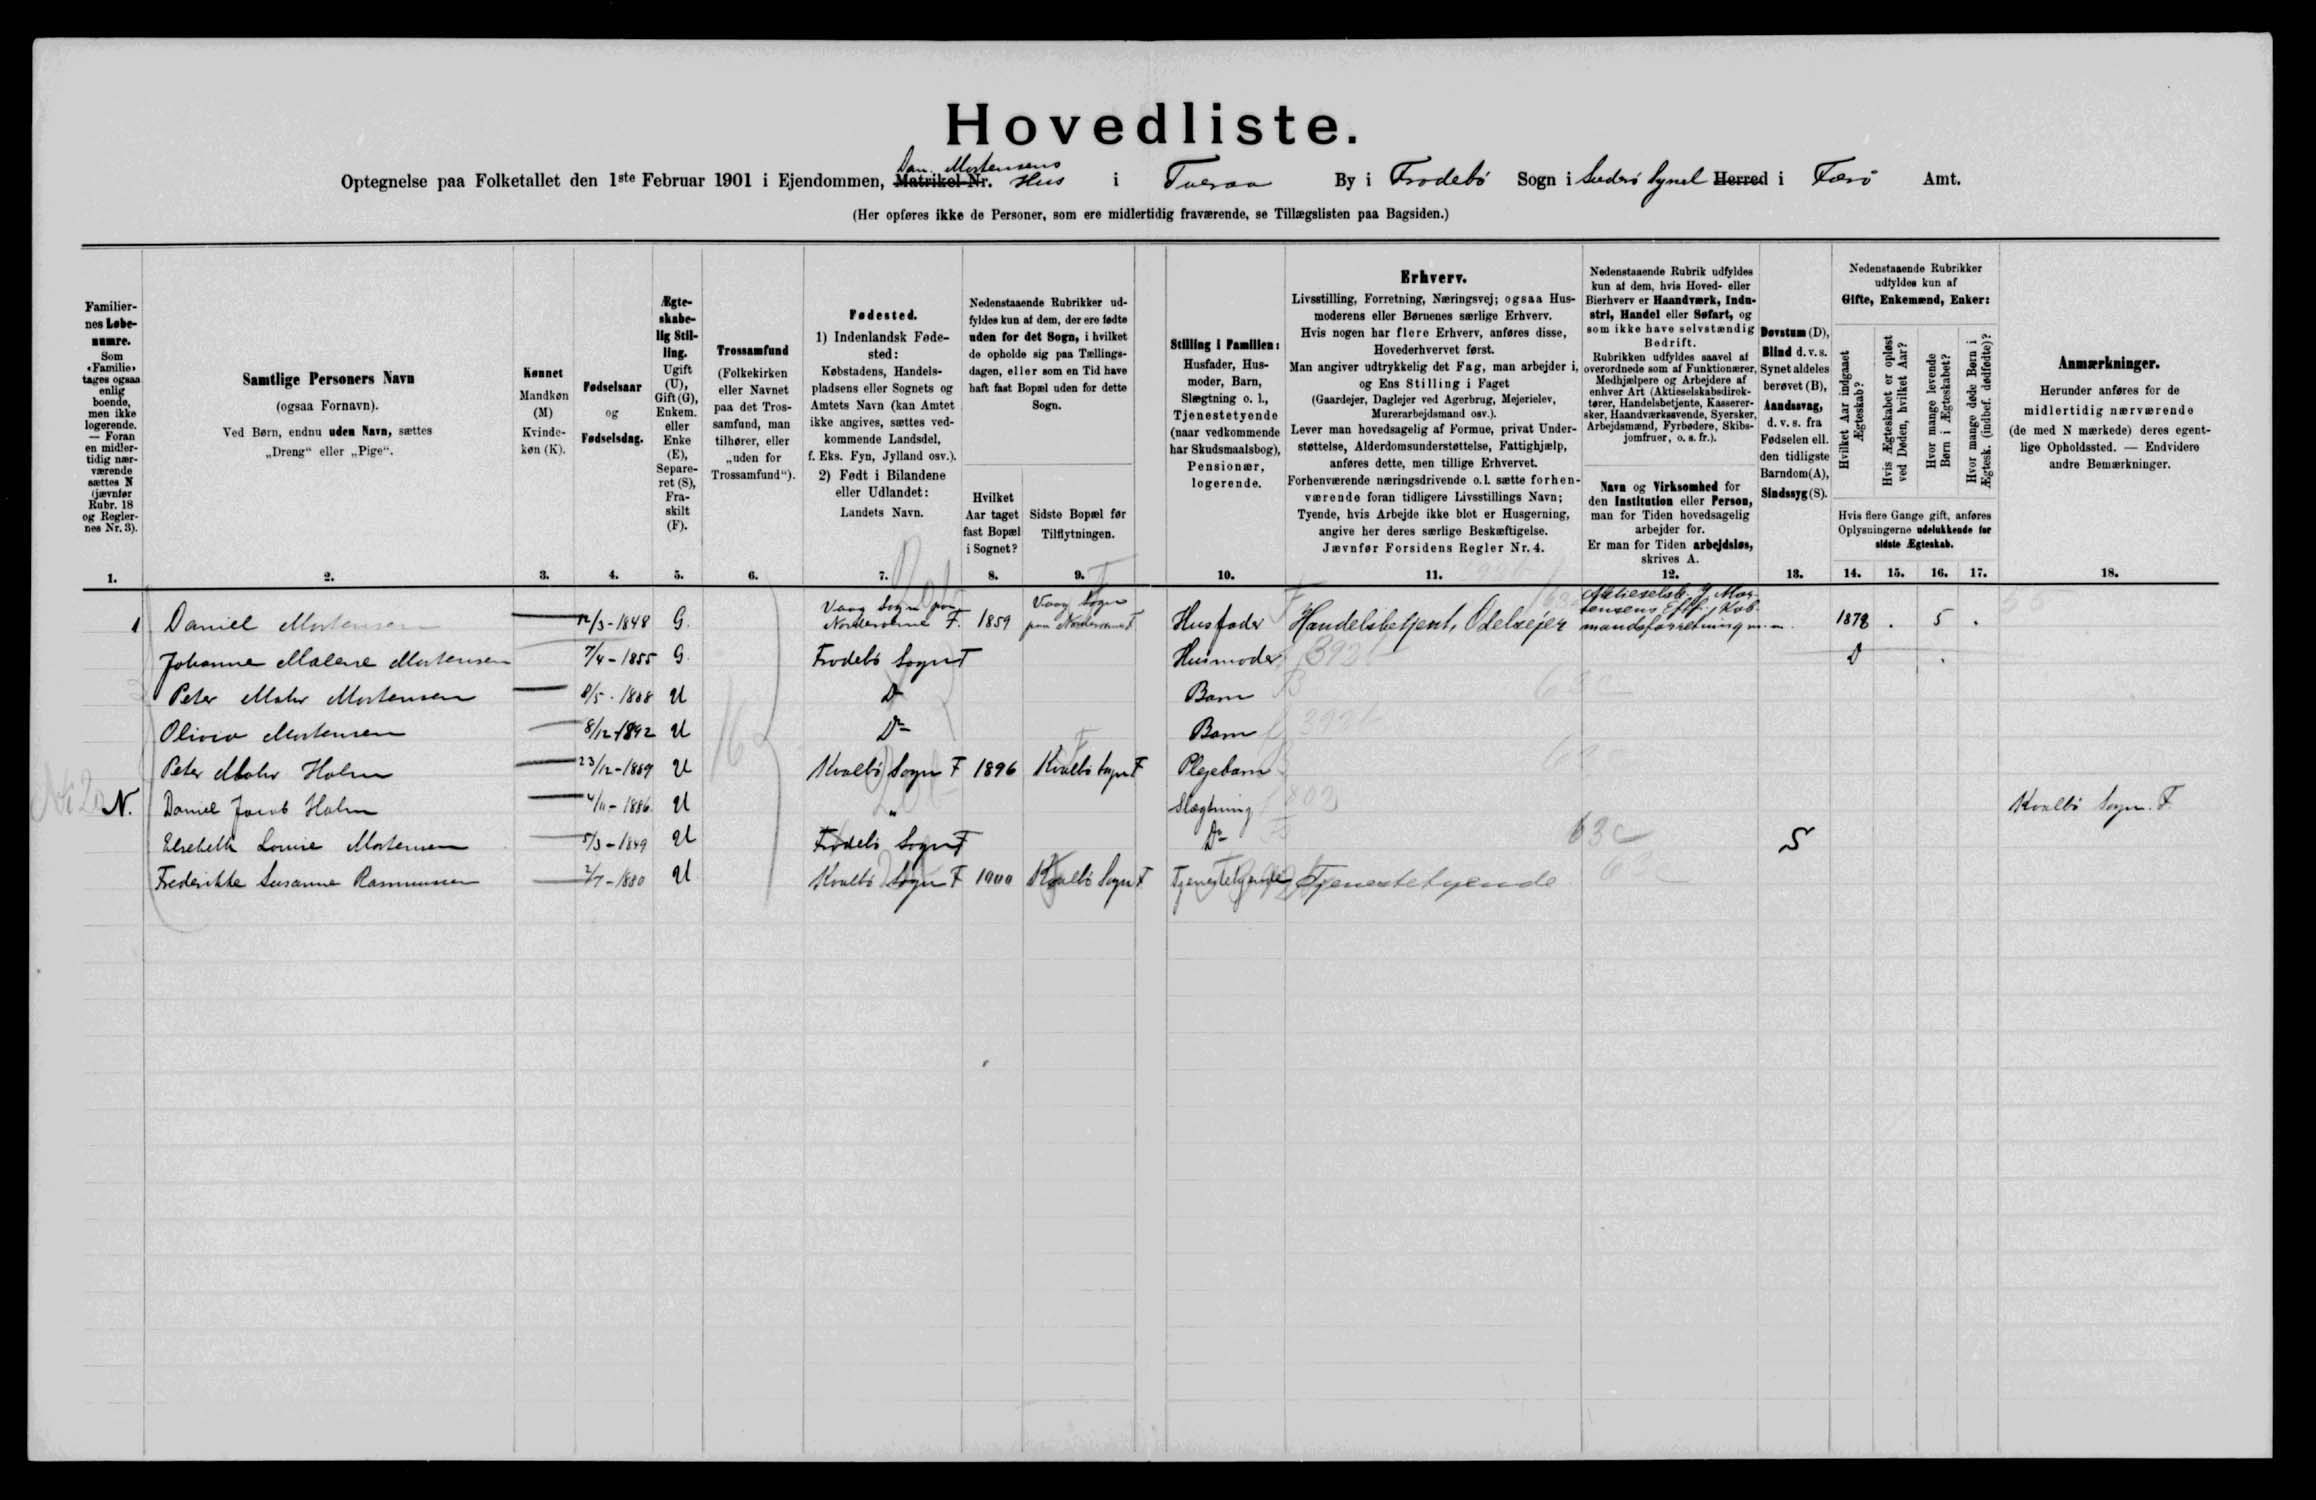 Hovedliste.
Optegnelse paa Folketallet den 1ste Februar 1901 i Ejendommen, Matrikel-Nr. Dan. Mortensens Hus i Tveraa By i Frodebø Sogn i Suderø Syssel Herred i Færø Amt.
(Her opføres ikke de Personer, som ere midlertidig fraværende, se Tillægslisten paa Bagsiden.)
Familier-
nes Løbe-
numre.
Som
«Familie»
tages ogsaa
enlig
boende,
men ikke
logerende.
— Foran
en midler-
tidig nær-
værende
sættes N
(jævnfør
Rubr. 18
og Regler-
nes Nr. 3).
1.
Samtlige Personers Navn
(ogsaa Fornavn).
Ved Børn, endnu uden Navn, sættes
„Dreng“ eller „Pige“.
2.
Kønnet
Mandkøn
(M)
Kvinde-
køn (K).
3.
Fødselsaar
og
Fødselsdag.
4.
Ægte-
skabe-
lig Stil-
ling.
Ugift
(U),
Gift (G),
Enkem.
eller
Enke
(E),
Separe-
ret (S),
Fra-
skilt
(F).
5.
Trossamfund
(Folkekirken
eller Navnet
paa det Tros-
samfund, man
tilhører, eller
„uden for
Trossamfund“).
6.
Fødested.
1) Indenlandsk Føde-
sted:
Købstadens, Handels-
pladsens eller Sognets og
Amtets Navn (kan Amtet
ikke angives, sættes ved-
kommende Landsdel,
f. Eks. Fyn, Jylland osv.).
2) Født i Bilandene
eller Udlandet:
Landets Navn.
7.
Nedenstaaende Rubrikker ud-
fyldes kun af dem, der ere fødte
uden for det Sogn, i hvilket
de opholde sig paa Tællings-
dagen, eller som en Tid have
haft fast Bopæl uden for dette
Sogn.
Hvilket
Aar taget
fast Bopæl
i Sognet?
8.
Sidste Bopæl før
Tilflytningen.
9.
Stilling i Familien:
Husfader, Hus-
moder, Barn,
Slægtning o. l.,
Tjenestetyende
(naar vedkommende
har Skudsmaalsbog),
Pensionær,
logerende.
10.
Erhverv.
Livsstilling, Forretning, Næringsvej; ogsaa Hus-
moderens eller Børnenes særlige Erhverv.
Hvis nogen har flere Erhverv, anføres disse,
Hovederhvervet først.
Man angiver udtrykkelig det Fag, man arbejder i,
og Ens Stilling i Faget
(Gaardejer, Daglejer ved Agerbrug, Mejerielev,
Murerarbejdsmand osv.).
Lever man hovedsagelig af Formue, privat Under-
støttelse, Alderdomsunderstøttelse, Fattighjælp,
anføres dette, men tillige Erhvervet.
Forhenværende næringsdrivende o.l. sætte forhen-
værende foran tidligere Livsstillings Navn;
Tyende, hvis Arbejde ikke blot er Husgerning,
angive her deres særlige Beskæftigelse.
Jævnfør Forsidens Regler Nr. 4.
11.
Nedenstaaende Rubrik udfyldes
kun af dem, hvis Hoved- eller
Bierhverv er Haandværk, Indu-
stri, Handel eller Søfart, og
som ikke have selvstændig
Bedrift.
Rubrikken udfyldes saavel af
overordnede som af Funktionærer,
Medhjælpere og Arbejdere af
enhver Art (Aktieselskabsdirek-
tører, Handelsbetjente, Kasserer-
sker, Haandværkssvende, Syersker,
Arbejdsmænd, Fyrbødere, Skibs-
jomfruer, o. s. fr.).
Navn og Virksomhed for
den Institution eller Person,
man for Tiden hovedsagelig
arbejder for.
Er man for Tiden arbejdsløs,
skrives A.
12.
Døvstum (D),
Blind d. v. s.
Synet aldeles
berøvet (B),
Aandssvag,
d. v. s. fra
Fødselen ell.
den tidligste
Barndom(A),
Sindssyg (S).
13.
Nedenstaaende Rubrikker
udfyldes kun af
Gifte, Enkemænd, Enker:
Hvilket Aar indgaaet
Ægteskab?
Hvis Ægteskabet er opløst
ved Døden, hvilket Aar?
Hvor mange levende
Børn i Ægteskabet?
Hvor mange døde Børn i
Ægtesk. (indbef. dødfødte)?
Hvis flere Gange gift, anføres
Oplysningerne udelukkende for
sidste Ægteskab.
14. 15. 16. 17.
Anmærkninger.
Herunder anføres for de
midlertidig nærværende
(de med N mærkede) deres egent-
lige Opholdssted. — Endvidere
andre Bemærkninger.
18.
1 Daniel Mortensen 12/3-1848 G. Vaag Sogn paa Norderøerne F. 1859 Vaag Sogn paa Norderøerne F Husfader Handelsbetjent, Odelsejer Aktieselsk. J. Mortensens Eftf., Købmandsforretning m.m. 1878 . 5 .
Johanne Malene Mortensen 7/4-1855 G. Frodebø Sogn F Husmoder D .
Peter Mohr Mortensen 8/5-1888 U Do Barn
Olivia Mortensen 8/12-1892 U Do Barn
Peter Mohr Holm 23/12-1889 U Kvalbø Sogn F 1896 Kvalbø Sogn F Plejebarn
N. Daniel Jacob Holm 4/11-1886 U " Slægtning Kvalbø Sogn. F
Elsebeth Louise Mortensen 5/3-1849 U Frodebø Sogn F Do 63c S
Frederikke Susanne Rasmussen 2/7-1880 U Kvalbø Sogn F 1900 Kvalbø Sogn F Tjenestetyende Tjenestetyende